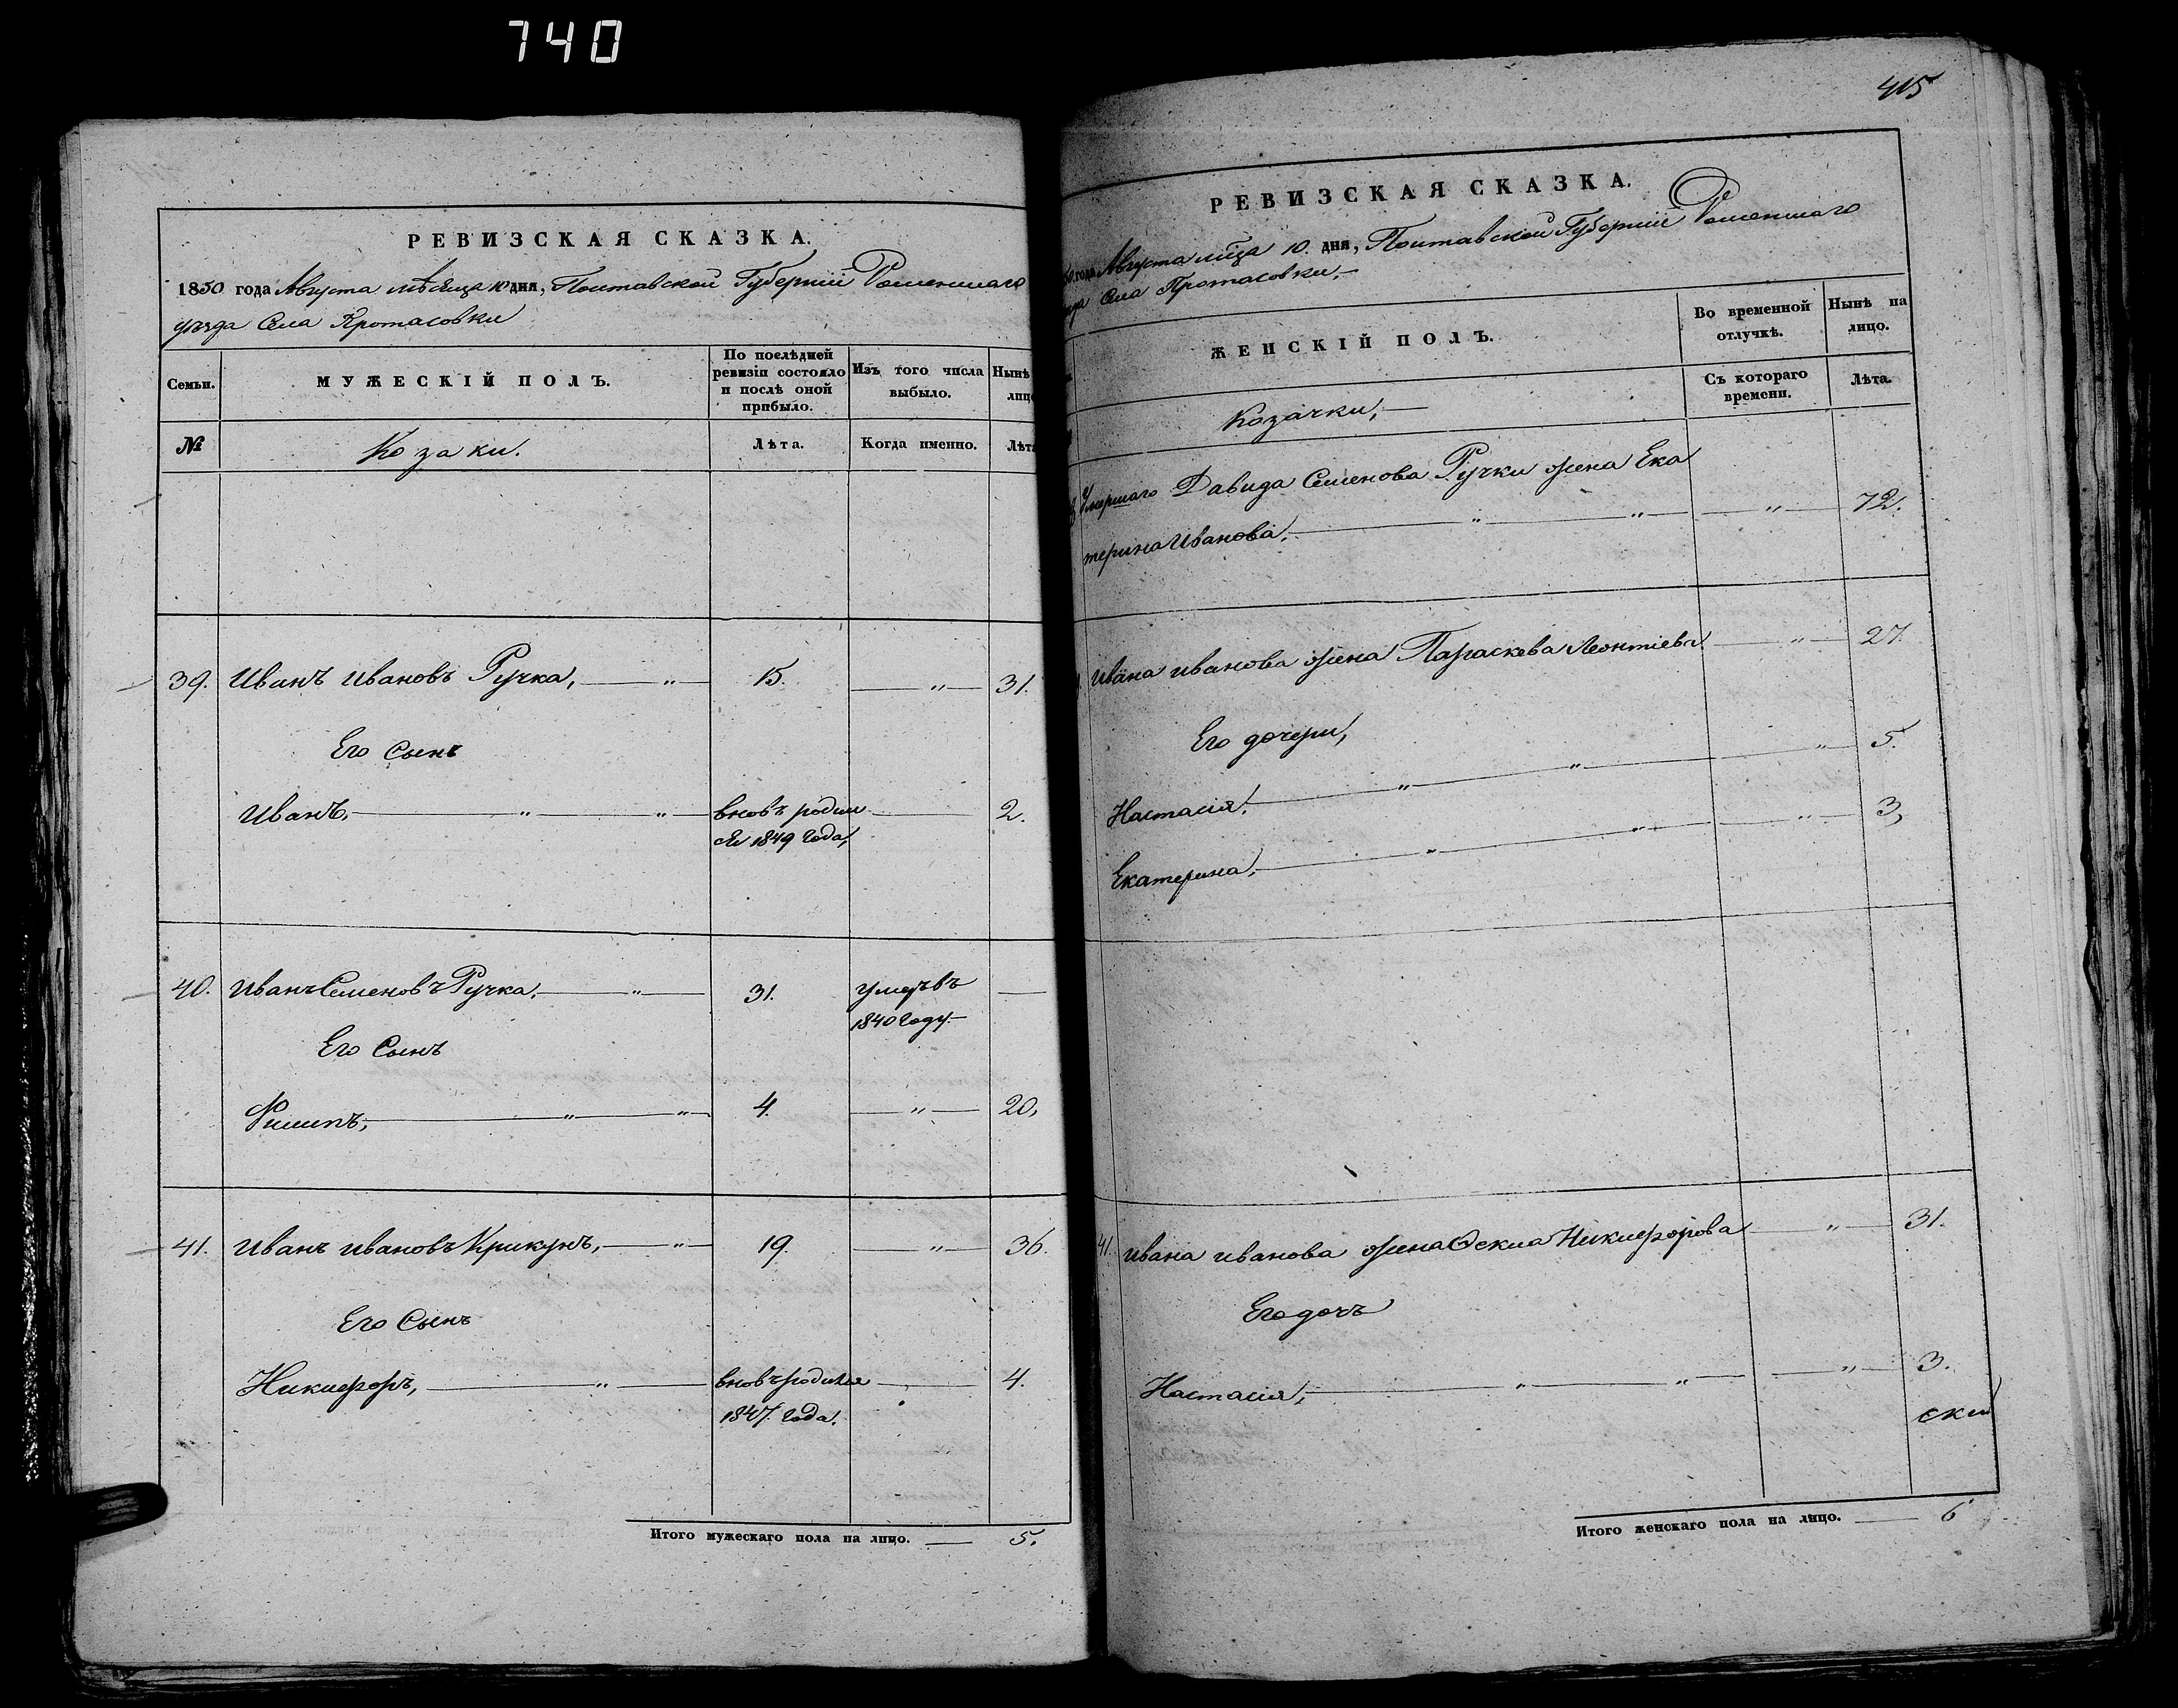 740
РЕВИЗСКАЯ СКАЗКА.
1850 года Августа месяца 10 дня, Полтавской Губернiи Роменшаго
уѣзда Села Протасовки
Семьи.
МУЖЕСКIЙ ПОЛЪ.
По послѣдней ревизiи состояло и послѣ оной прибыло.
Изъ того числа выбыло.
Нынѣ лицо
№
Козаки.
Лѣта.
Когда именно.
Лѣта
39. Иванъ Ивановъ Ручка, 15. 31.
Его Сынъ
Иванъ. вновь родил 2.
ся 1849 года,
40. Иванъ Семеновъ Ручка. 31. умеръ въ
1840 году.
Его Сынъ
Филипъ, 4. 20,
41. Иванъ Ивановъ Крикунъ, 19. 36.
Его Сынъ
Никифоръ, вновь родился 4.
1847 года.
Итого мужескаго пола на лицо. 5.
415
РЕВИЗСКАЯ СКАЗКА.
года Августа мца 10. дня, Полтавской Губернiи Роменшаго
Села Протасовки.
ЖЕНСКIЙ ПОЛЪ.
Во временной отлучкѣ.
Нынѣ на лицо.
Козачки,
Съ котораго времени.
Лѣта.
Умершаго Давида Семенова Ручки жена Ека
терина Иванова. 72.
Ивана Иванова жена Параскева Леонтiева 27.
Его дочери,
Настасiя. 5.
Екатерина. 3,
41. Ивана Иванова жена Ѳекла Никифорова 31.
Его дочъ
Настасiя, 3.
Итого женскаго пола на лицо. 6